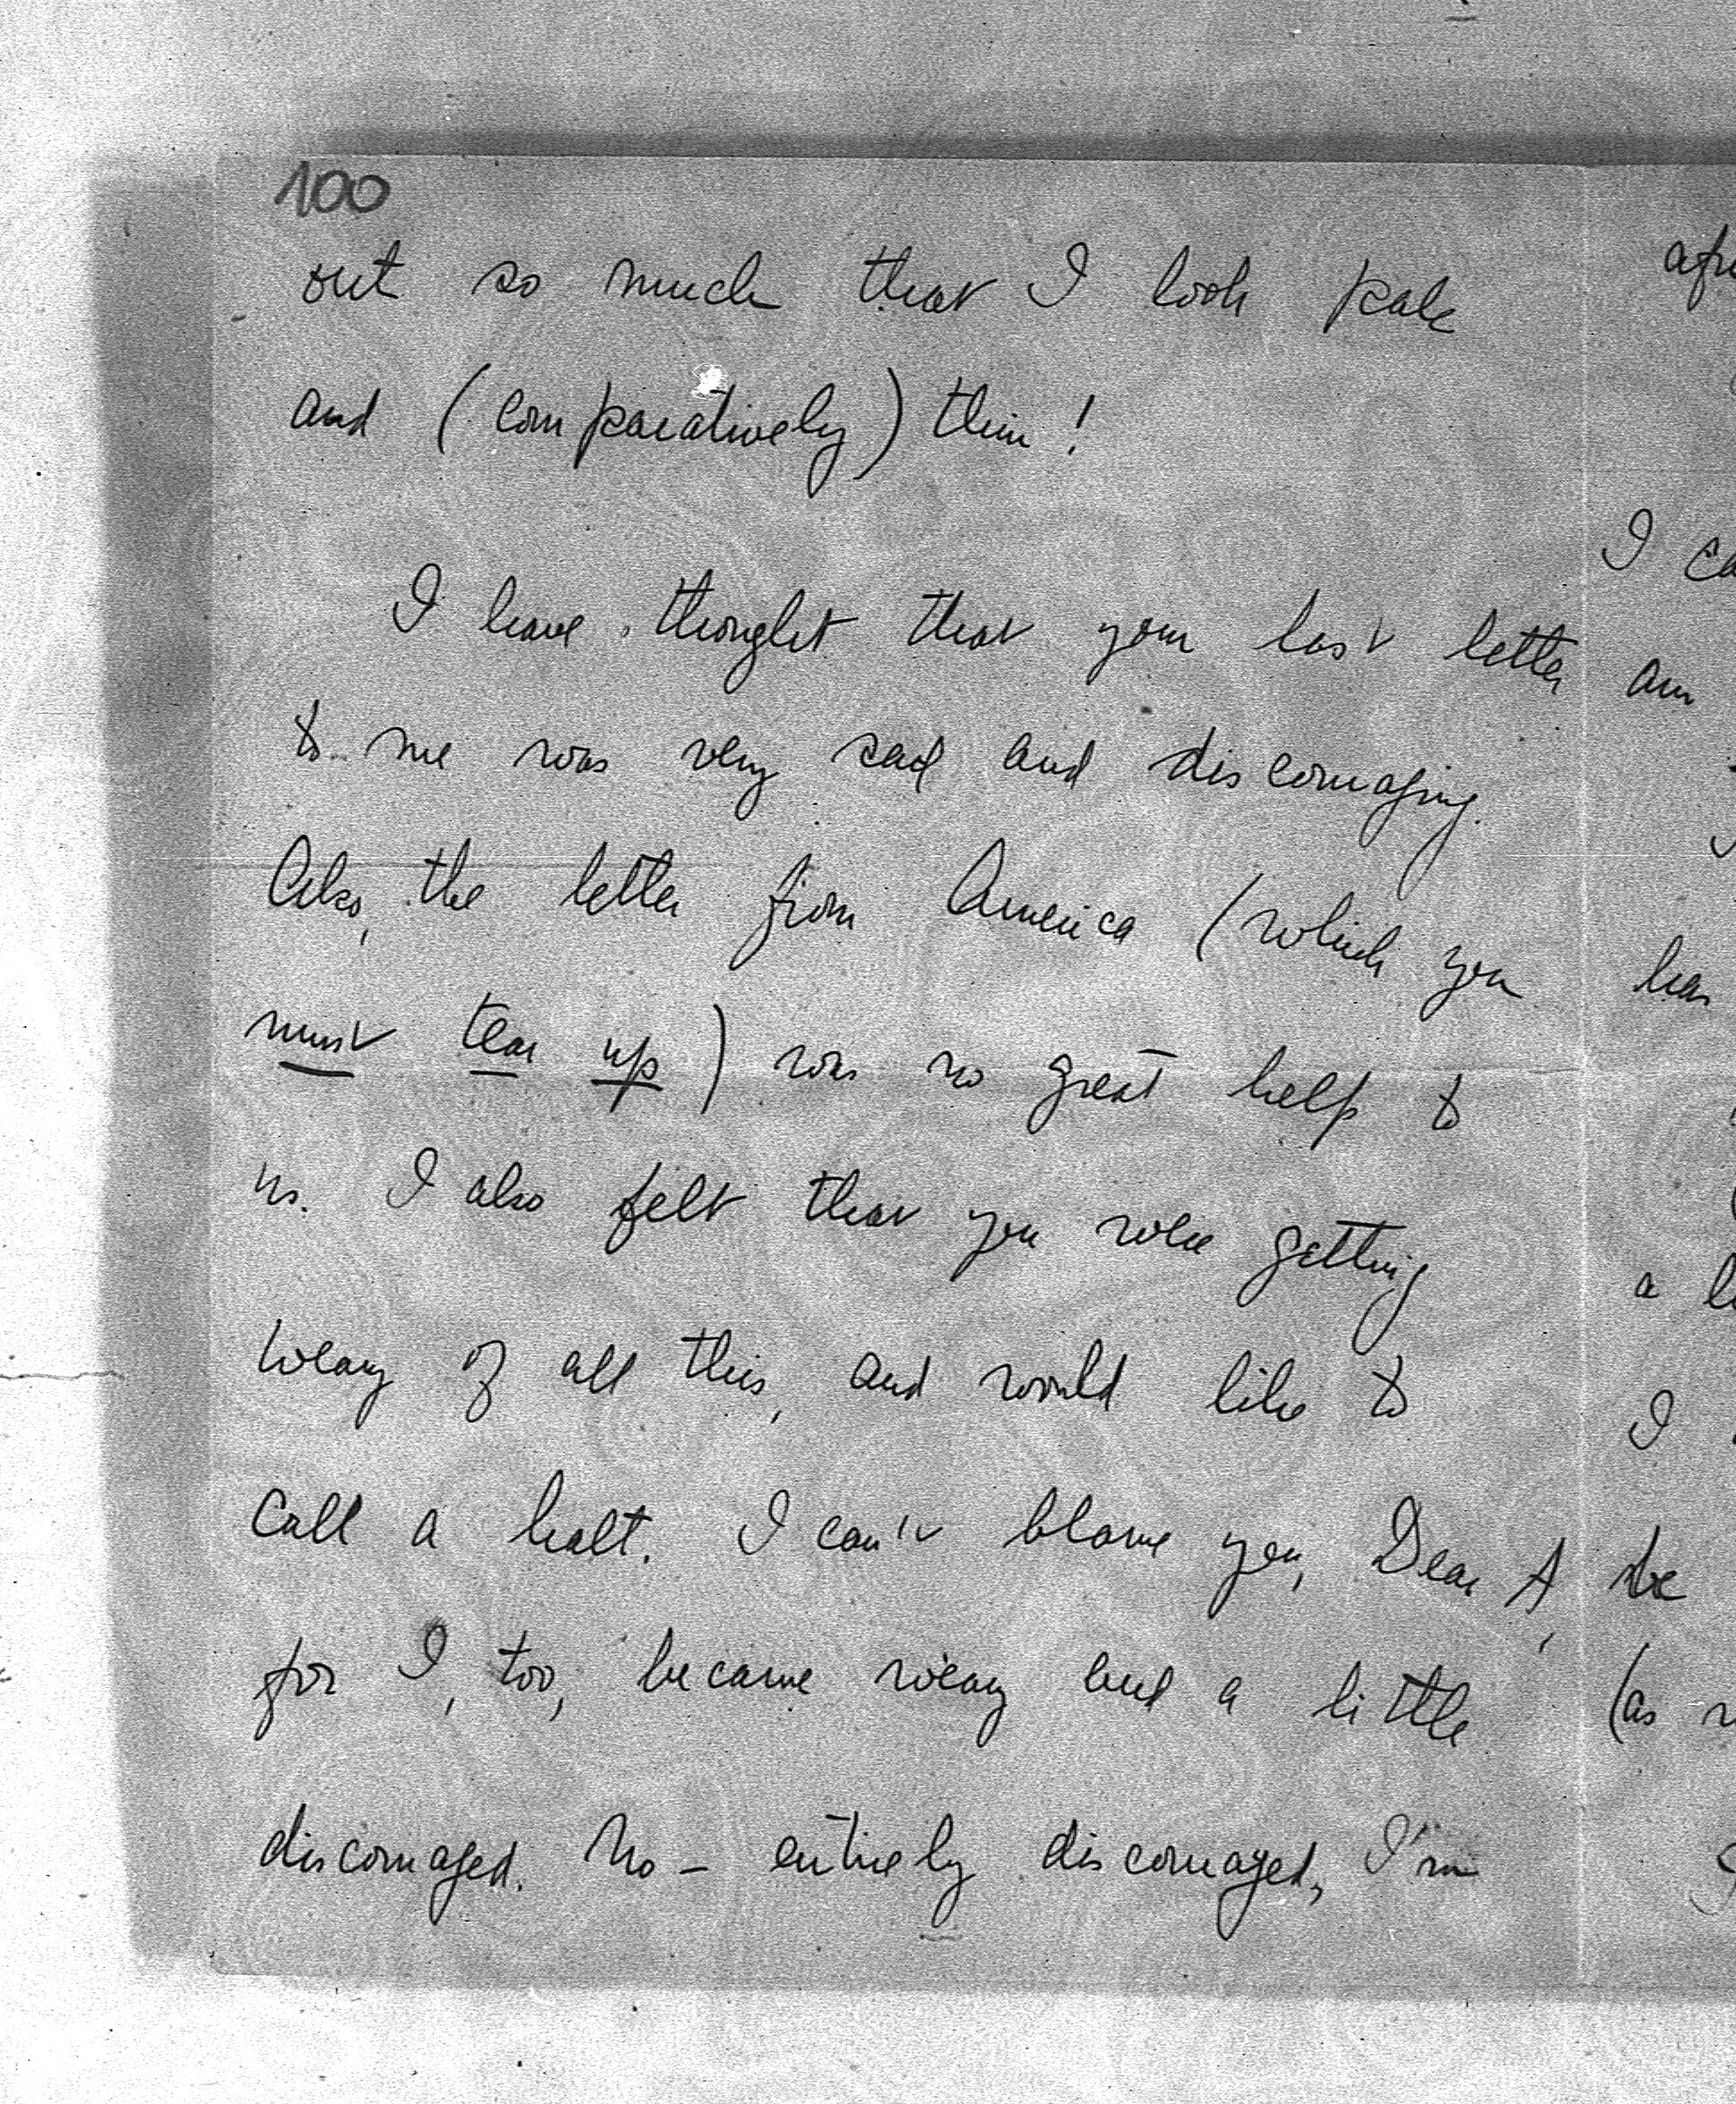 100
out so much that I look pale
and (comparatively) thin!
I have thought that your last letter
to me was very sad and discouraging.
Also, the letter from America (which you
must tear up) was no great help to
us. I also felt that you were getting
weary of all this, and would like to
call a halt. I can't blame you, Dear A,
for I, too, became weary and a little
discouraged. No – entirely discouraged, I'm
I
am
has
a
I
be
(as